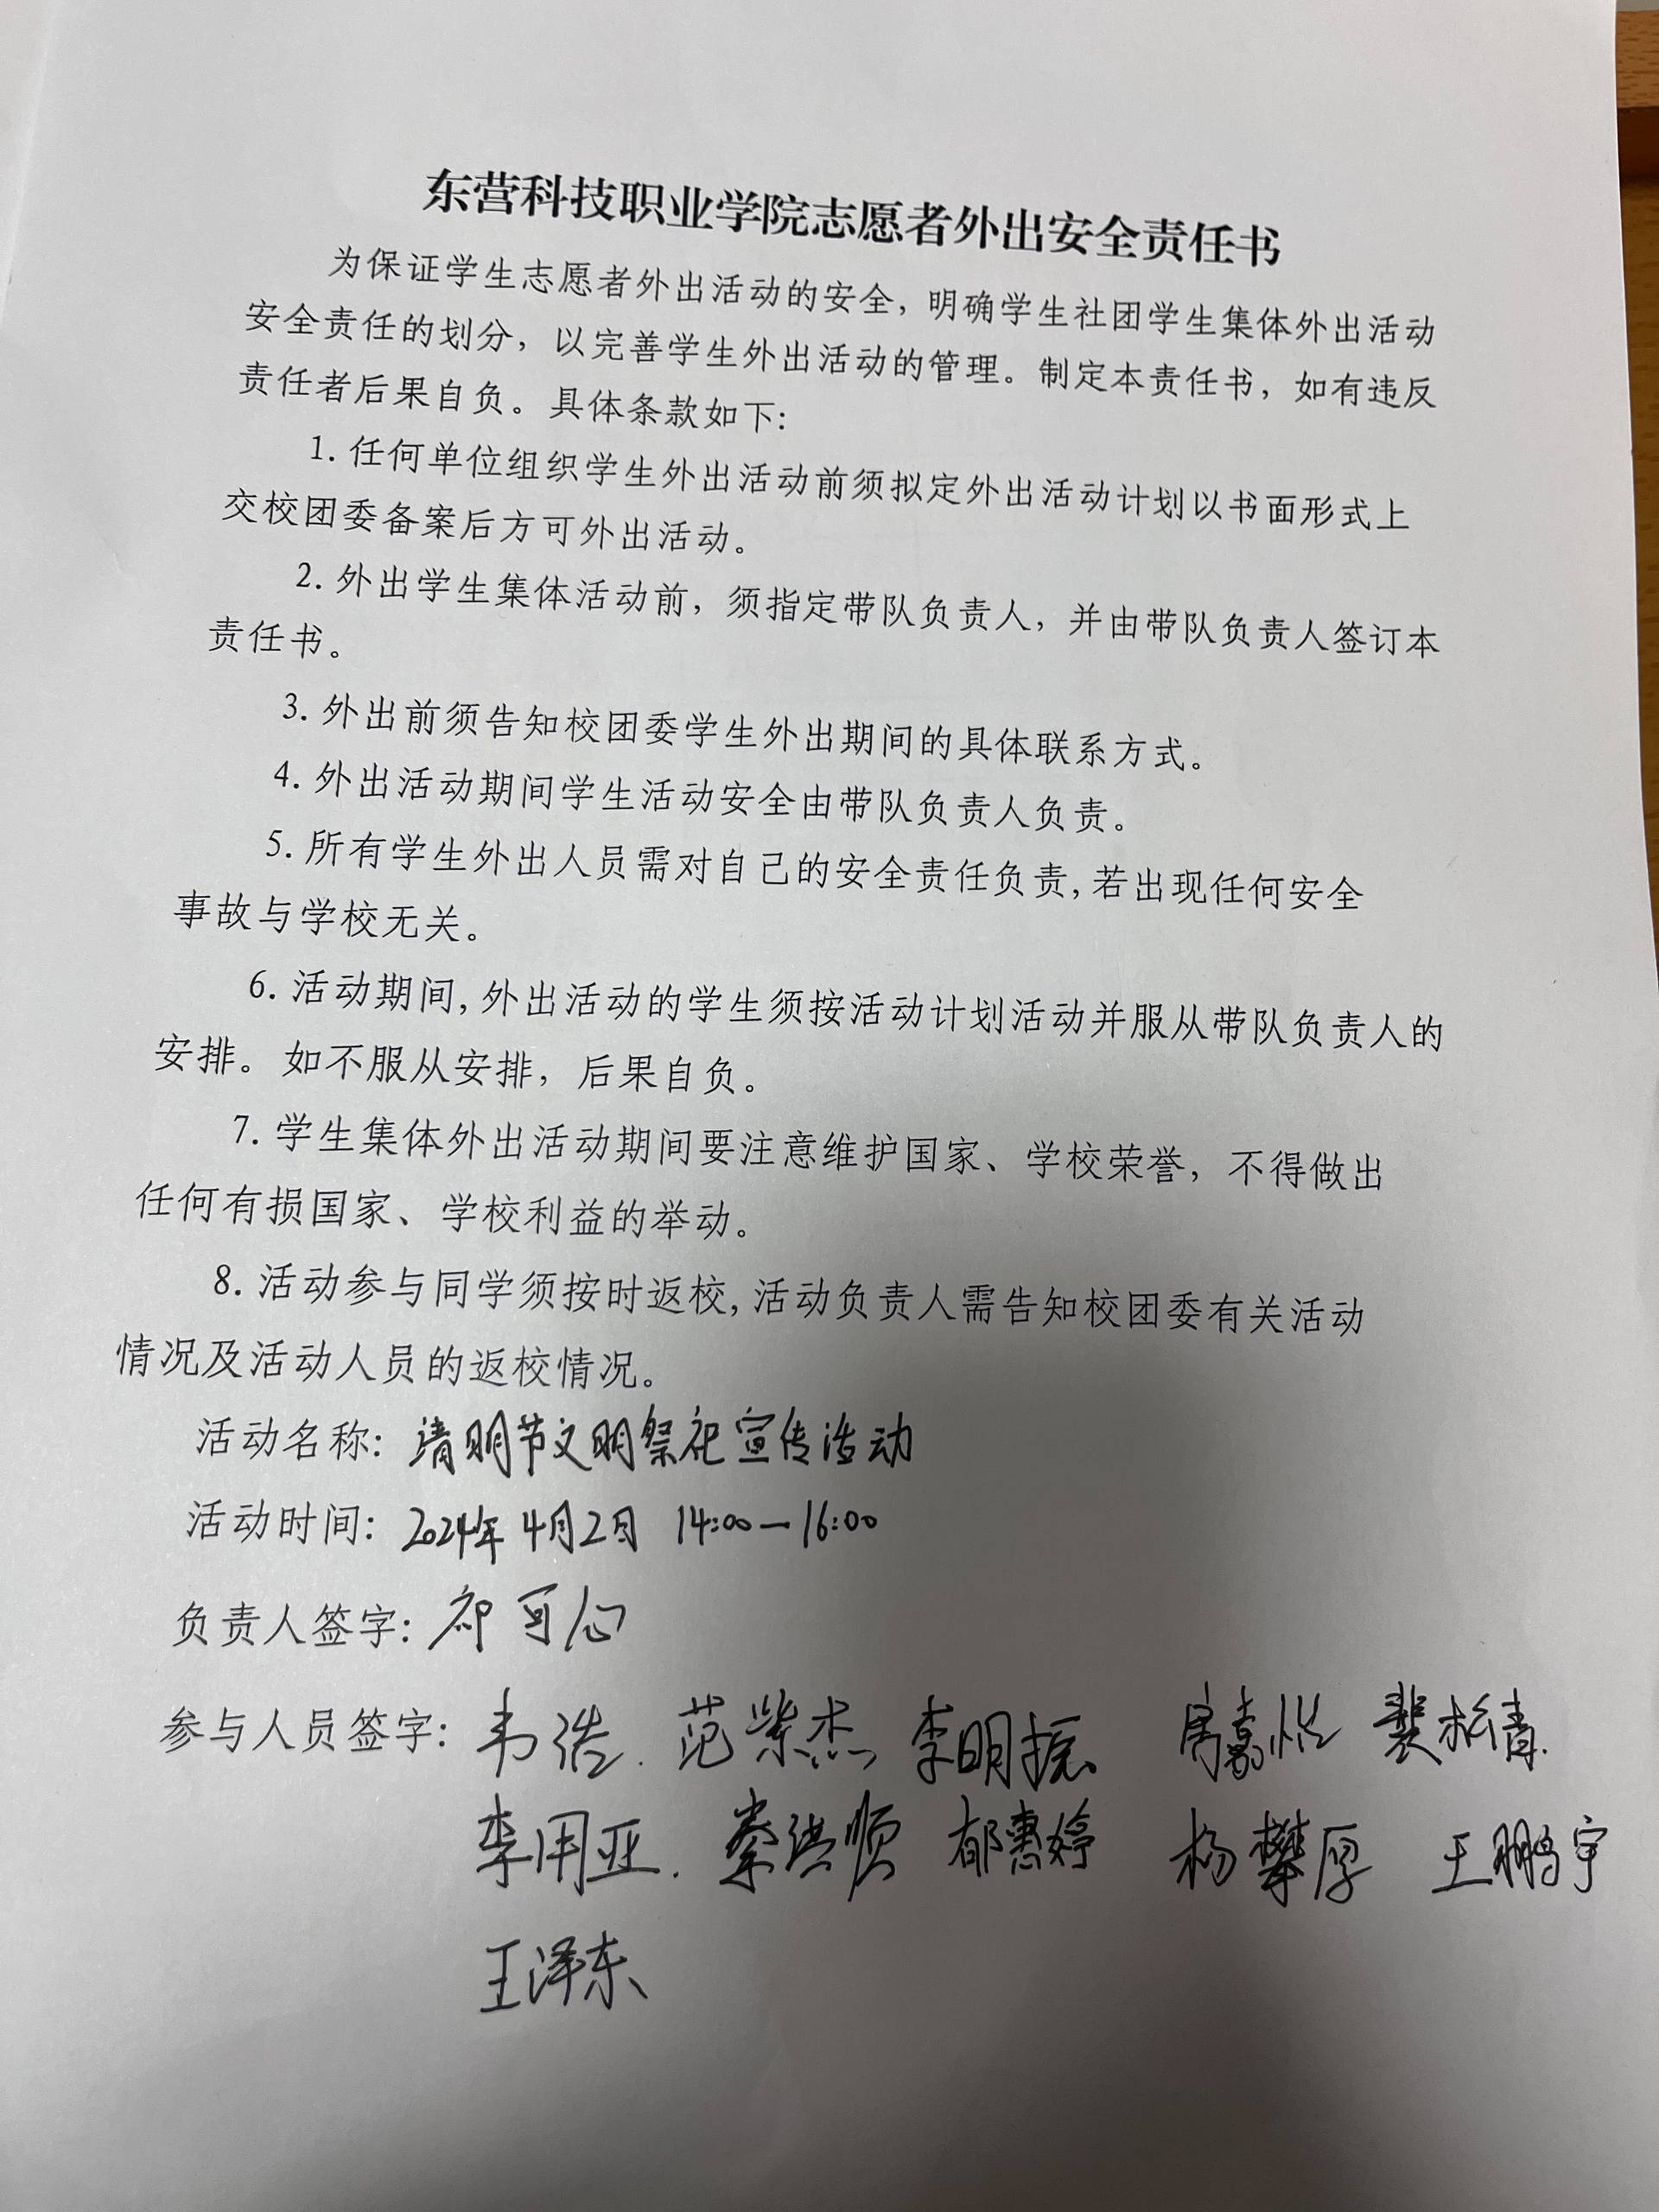 东营科技职业学院志愿者外出安全责任书
为保证学生志愿者外出活动的安全，明确学生社团学生集体外出活动
安全责任的划分，以完善学生外出活动的管理。制定本责任书，如有违反
责任者后果自负。具体条款如下：
1. 任何单位组织学生外出活动前须拟定外出活动计划以书面形式上
交校团委备案后方可外出活动。
2. 外出学生集体活动前，须指定带队负责人，并由带队负责人签订本
责任书。
3. 外出前须告知校团委学生外出期间的具体联系方式。
4. 外出活动期间学生活动安全由带队负责人负责。
5. 所有学生外出人员需对自己的安全责任负责,若出现任何安全
事故与学校无关。
6. 活动期间,外出活动的学生须按活动计划活动并服从带队负责人的
安排。如不服从安排，后果自负。
7. 学生集体外出活动期间要注意维护国家、学校荣誉，不得做出
任何有损国家、学校利益的举动。
8. 活动参与同学须按时返校,活动负责人需告知校团委有关活动
情况及活动人员的返校情况。
活动名称：清明节文明祭祀宣传活动
活动时间：2024年4月2日 14:00—16:00
负责人签字：祁可心
参与人员签字：韦浩. 范紫杰 李明振 房嘉悦 裴松青.
李用亚. 娄洪顺 郁惠婷 杨攀厚 王鹏宇
王泽东